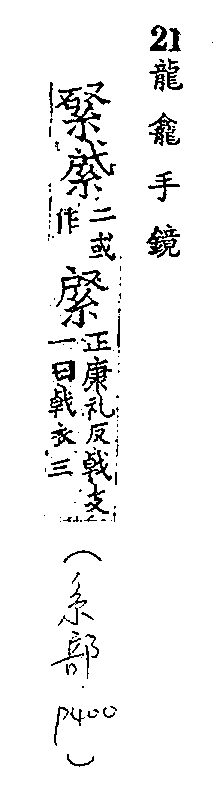 21
龍龕手鏡
二或
作
正康礼反戟支
一曰戟衣三
（糸部
p400）